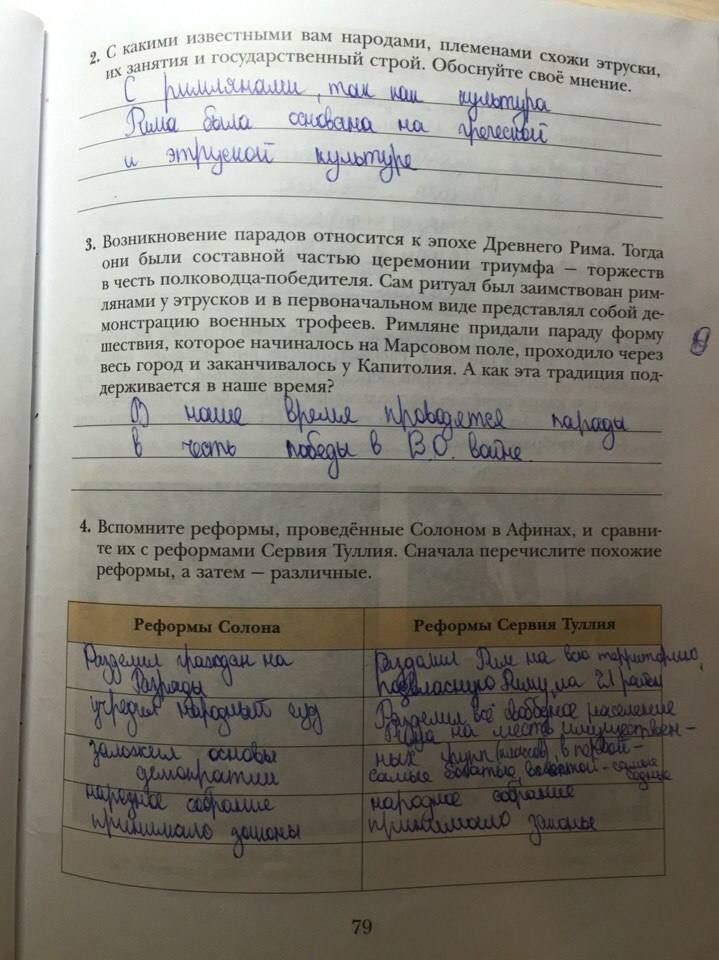 2. С какими известными вам народами, племенами схожи этруски,
их занятия и государственный строй. Обоснуйте своё мнение.
С римлянами, так как культура
Рима была основана на греческой
и этруской культуре
3. Возникновение парадов относится к эпохе Древнего Рима. Тогда
они были составной частью церемонии триумфа — торжеств
в честь полководца-победителя. Сам ритуал был заимствован рим-
лянами у этрусков и в первоначальном виде представлял собой де-
монстрацию военных трофеев. Римляне придали параду форму
шествия, которое начиналось на Марсовом поле, проходило через
весь город и заканчивалось у Капитолия. А как эта традиция под-
держивается в наше время?
В наше время проводятся парады
в честь победы в В.О. войне.
4. Вспомните реформы, проведённые Солоном в Афинах, и сравни-
те их с реформами Сервия Туллия. Сначала перечислите похожие
реформы, а затем — различные.
Реформы Солона
Реформы Сервия Туллия
Разделил граждан на
разряды
учредил народный суд
заложил основы
демократии
народное собрание
принимало законы
Рим на всю территорию,
подвласную Риму, на 21 район
Разделил всё свободное население
Рима на шесть имуществен-
ных групп (классов), в первой-
самые богатые, в шестой - самые
бедные
народное собрание
принимало законы
79